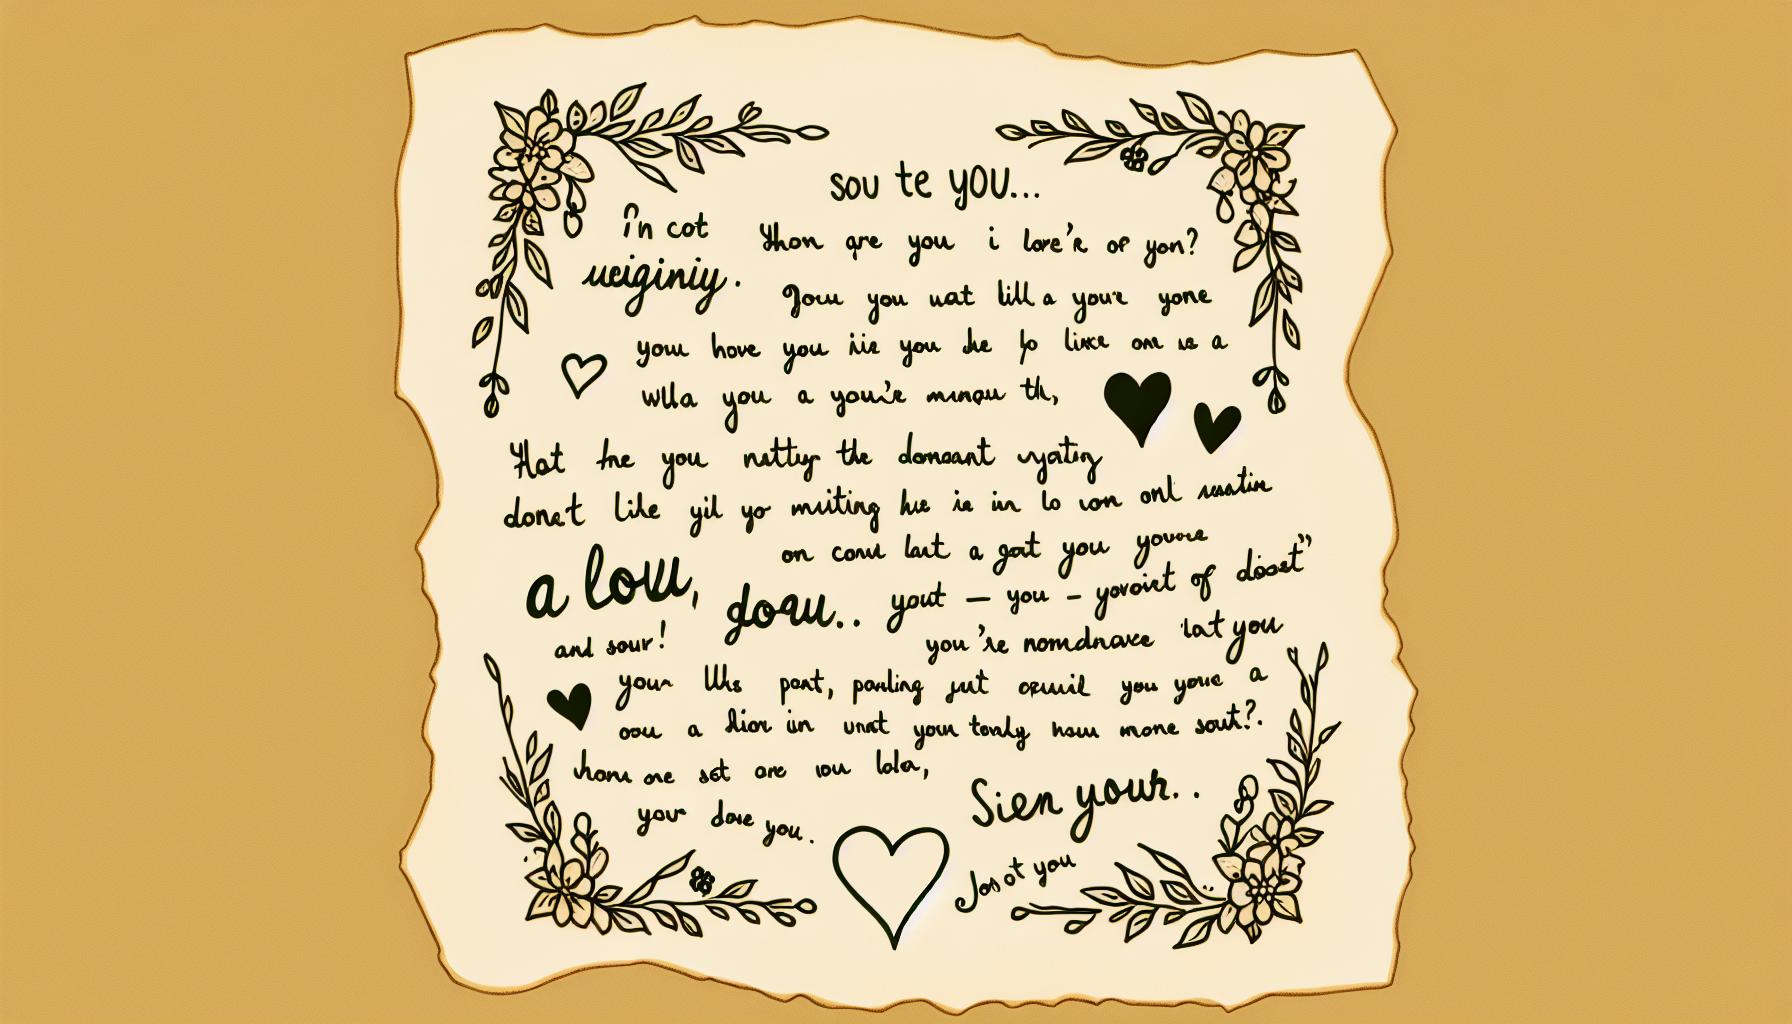 sou te you...
i'n cot
ueiginiy.
Thon are you i lore'r of yon?
Jou you wat lill a your yone
you hove you iie you de to like on is a
willa you a you're mnqu th,
Hat fre you nattiy the domsant
donat like yil yo muiting he is in lo von onl
on conu lart a gat you youre
a lou, doau.. yout — you – yoroist of doost”
and sour!
you 're nomdnave lat you
your lks pant, panling jut you youe a
oou a in unat your tonly nauu mone sout?.
hom one sat are you lola,
your dove you.
Sien your..
Josot you